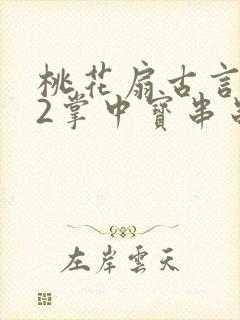 桃花扇古言
2掌中寳串
左岸雲天